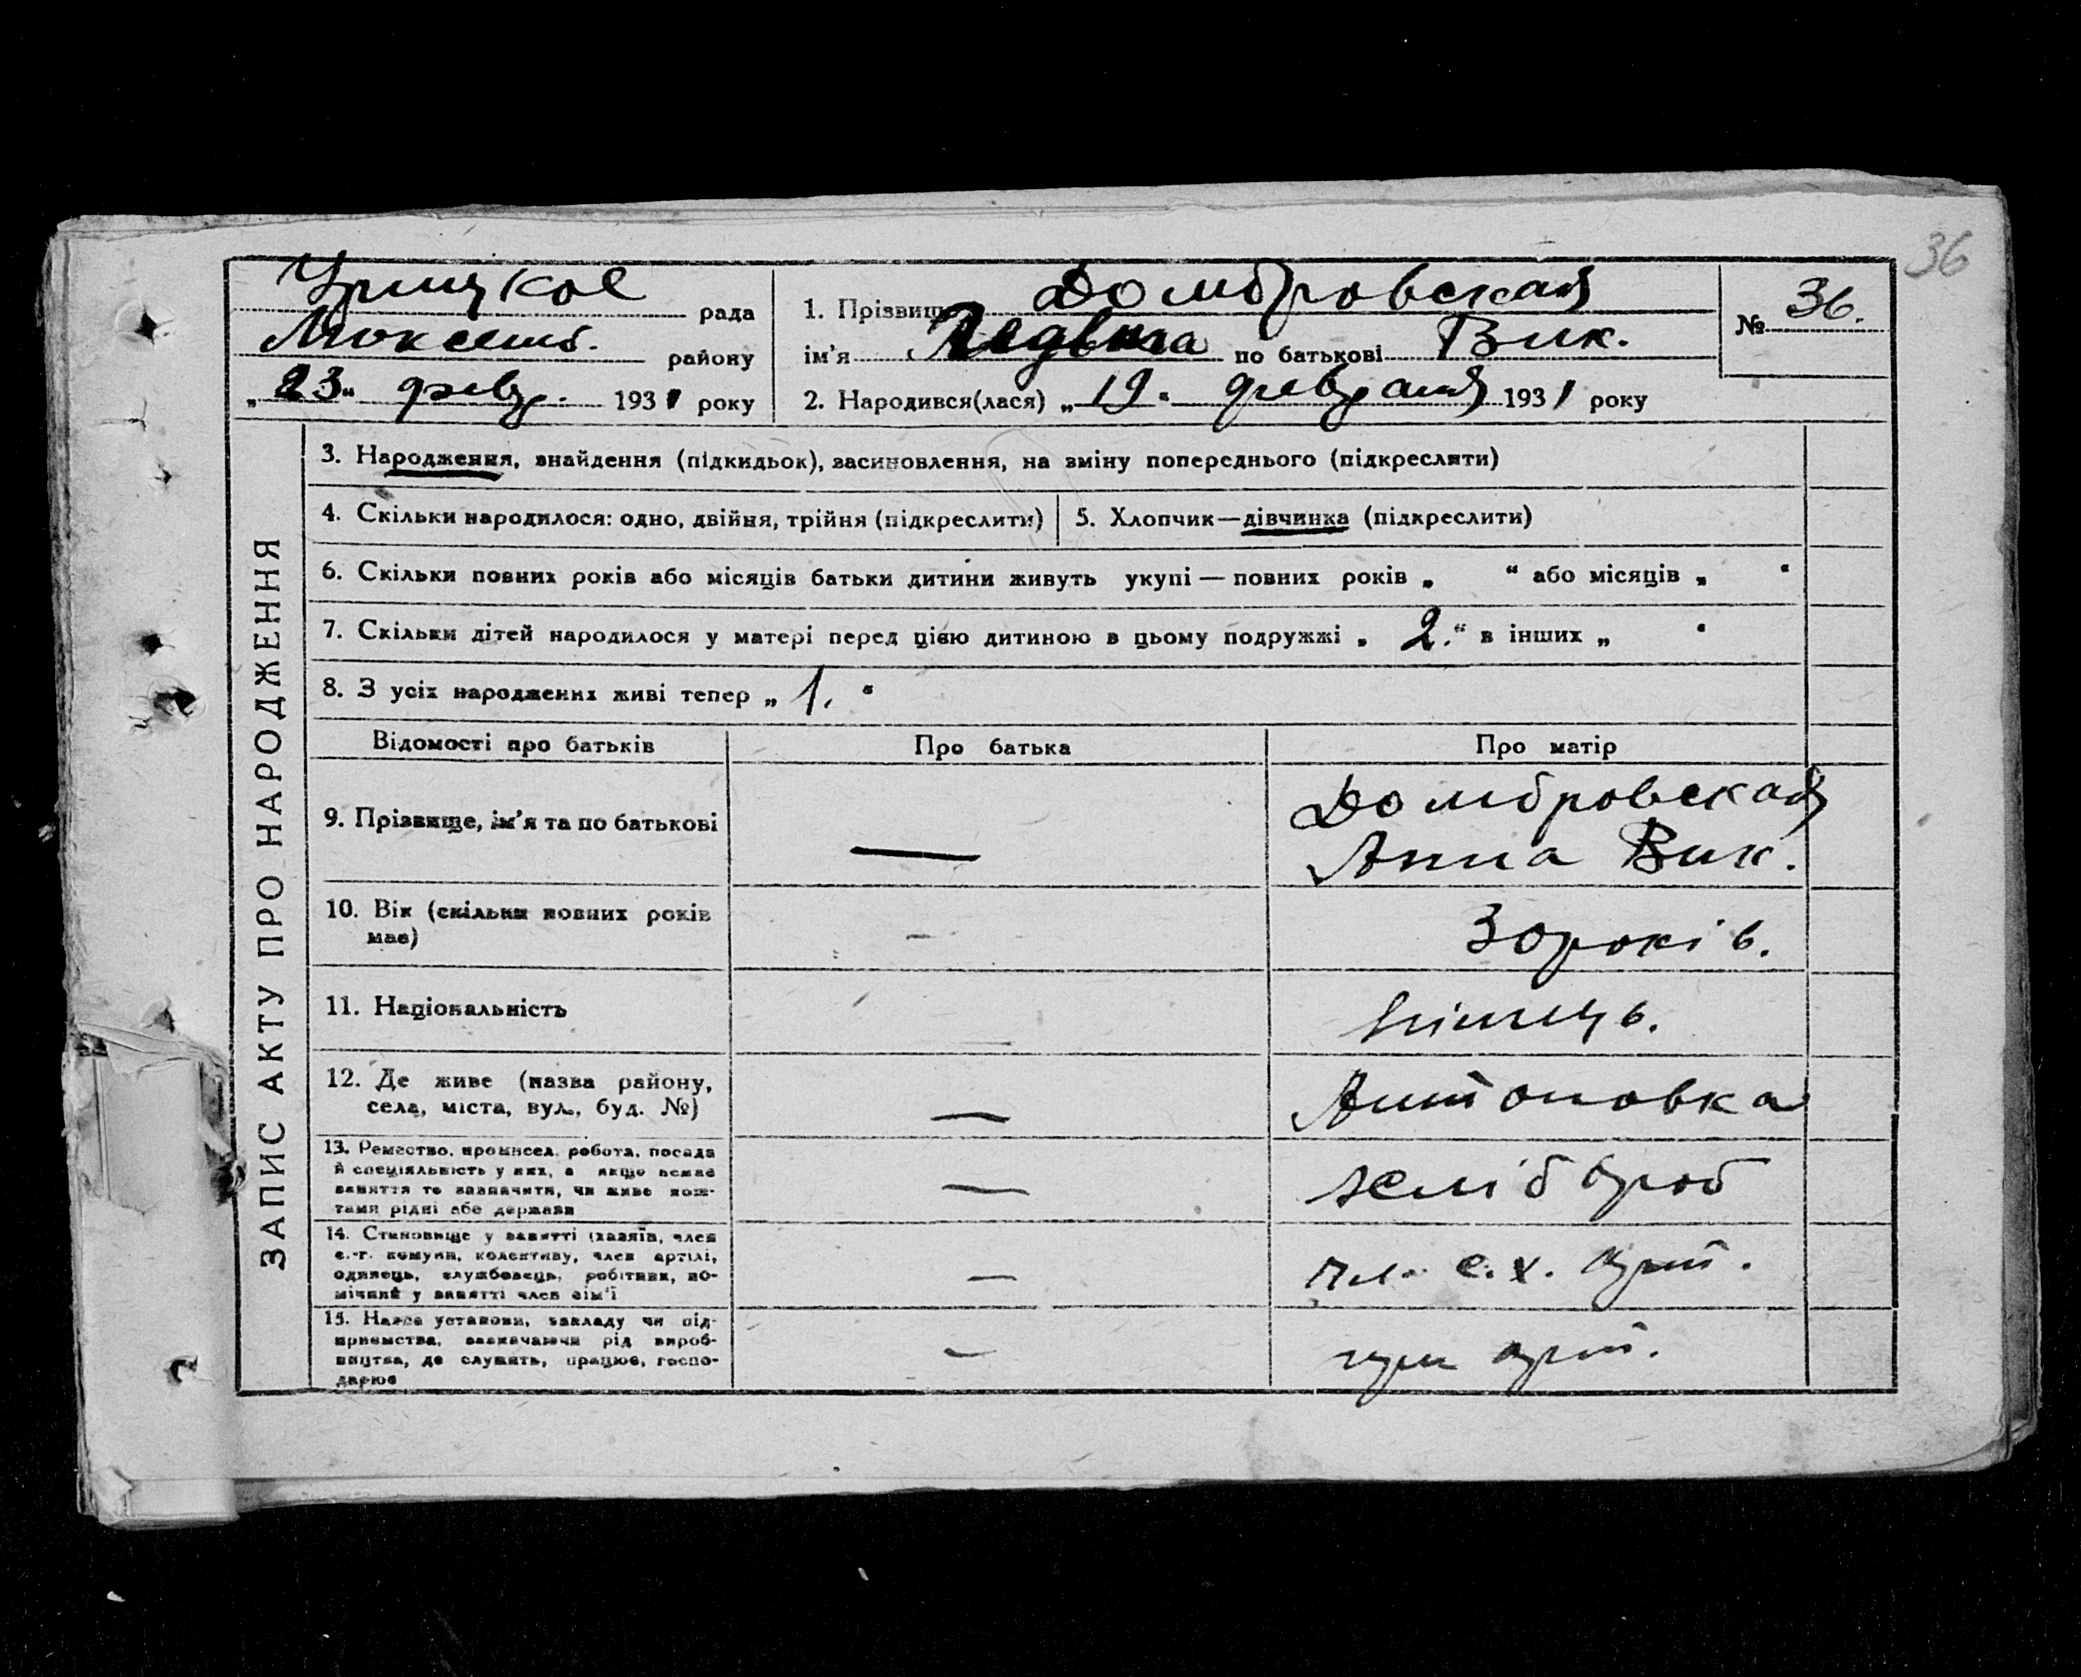 36
Урицкое рада
Люксемб. району
„23“ февр. 1931 року
1. Прізвище Домбровская
ім'я Ядвига по батькові Вик.
2. Народився(лася) „19“ февраля 1931 року
№ 36.
ЗАПИС АКТУ ПРО НАРОДЖЕННЯ
3. Народження, знайдення (підкидьок), засиновлення, на зміну попереднього (підкреслити)
4. Скільки народилося: одно, двійня, трійня (підкреслити)
5. Хлопчик—дівчинка (підкреслити)
6. Скільки повних років або місяців батьки дитини живуть укупі — повних років „ “ або місяців „ “
7. Скільки дітей народилося у матері перед цією дитиною в цьому подружжі „ 2. “ в інших „ “
8. З усіх народжених живі тепер „ 1. “
Відомості про батьків
Про батька
Про матір
9. Прізвище, ім'я та по батькові
—
Домбровская
Анна Вик.
10. Вік (скільки повних років
має)
—
30 років.
11. Національність
—
німець.
12. Де живе (назва району,
села, міста, вул., буд. №)
—
Антоновка
13. Ремество, промисел, робота, посада
й спеціяльність у них, а якщо немає
заняття то зазначити, чи живе кош-
тами рідні або держави
—
хліб
14. Становище у занятті (хазяїн, член
с.-г. комуни, колективу, член артілі,
одинець, службовець, робітник, по-
мічний у занятті член сім'ї
—
чл. с.х. арт.
15. Назва установи, закладу чи під-
приємства, зазначаючи рід вироб-
ництва, де служить, працює, госпо-
дарює
—
арт.